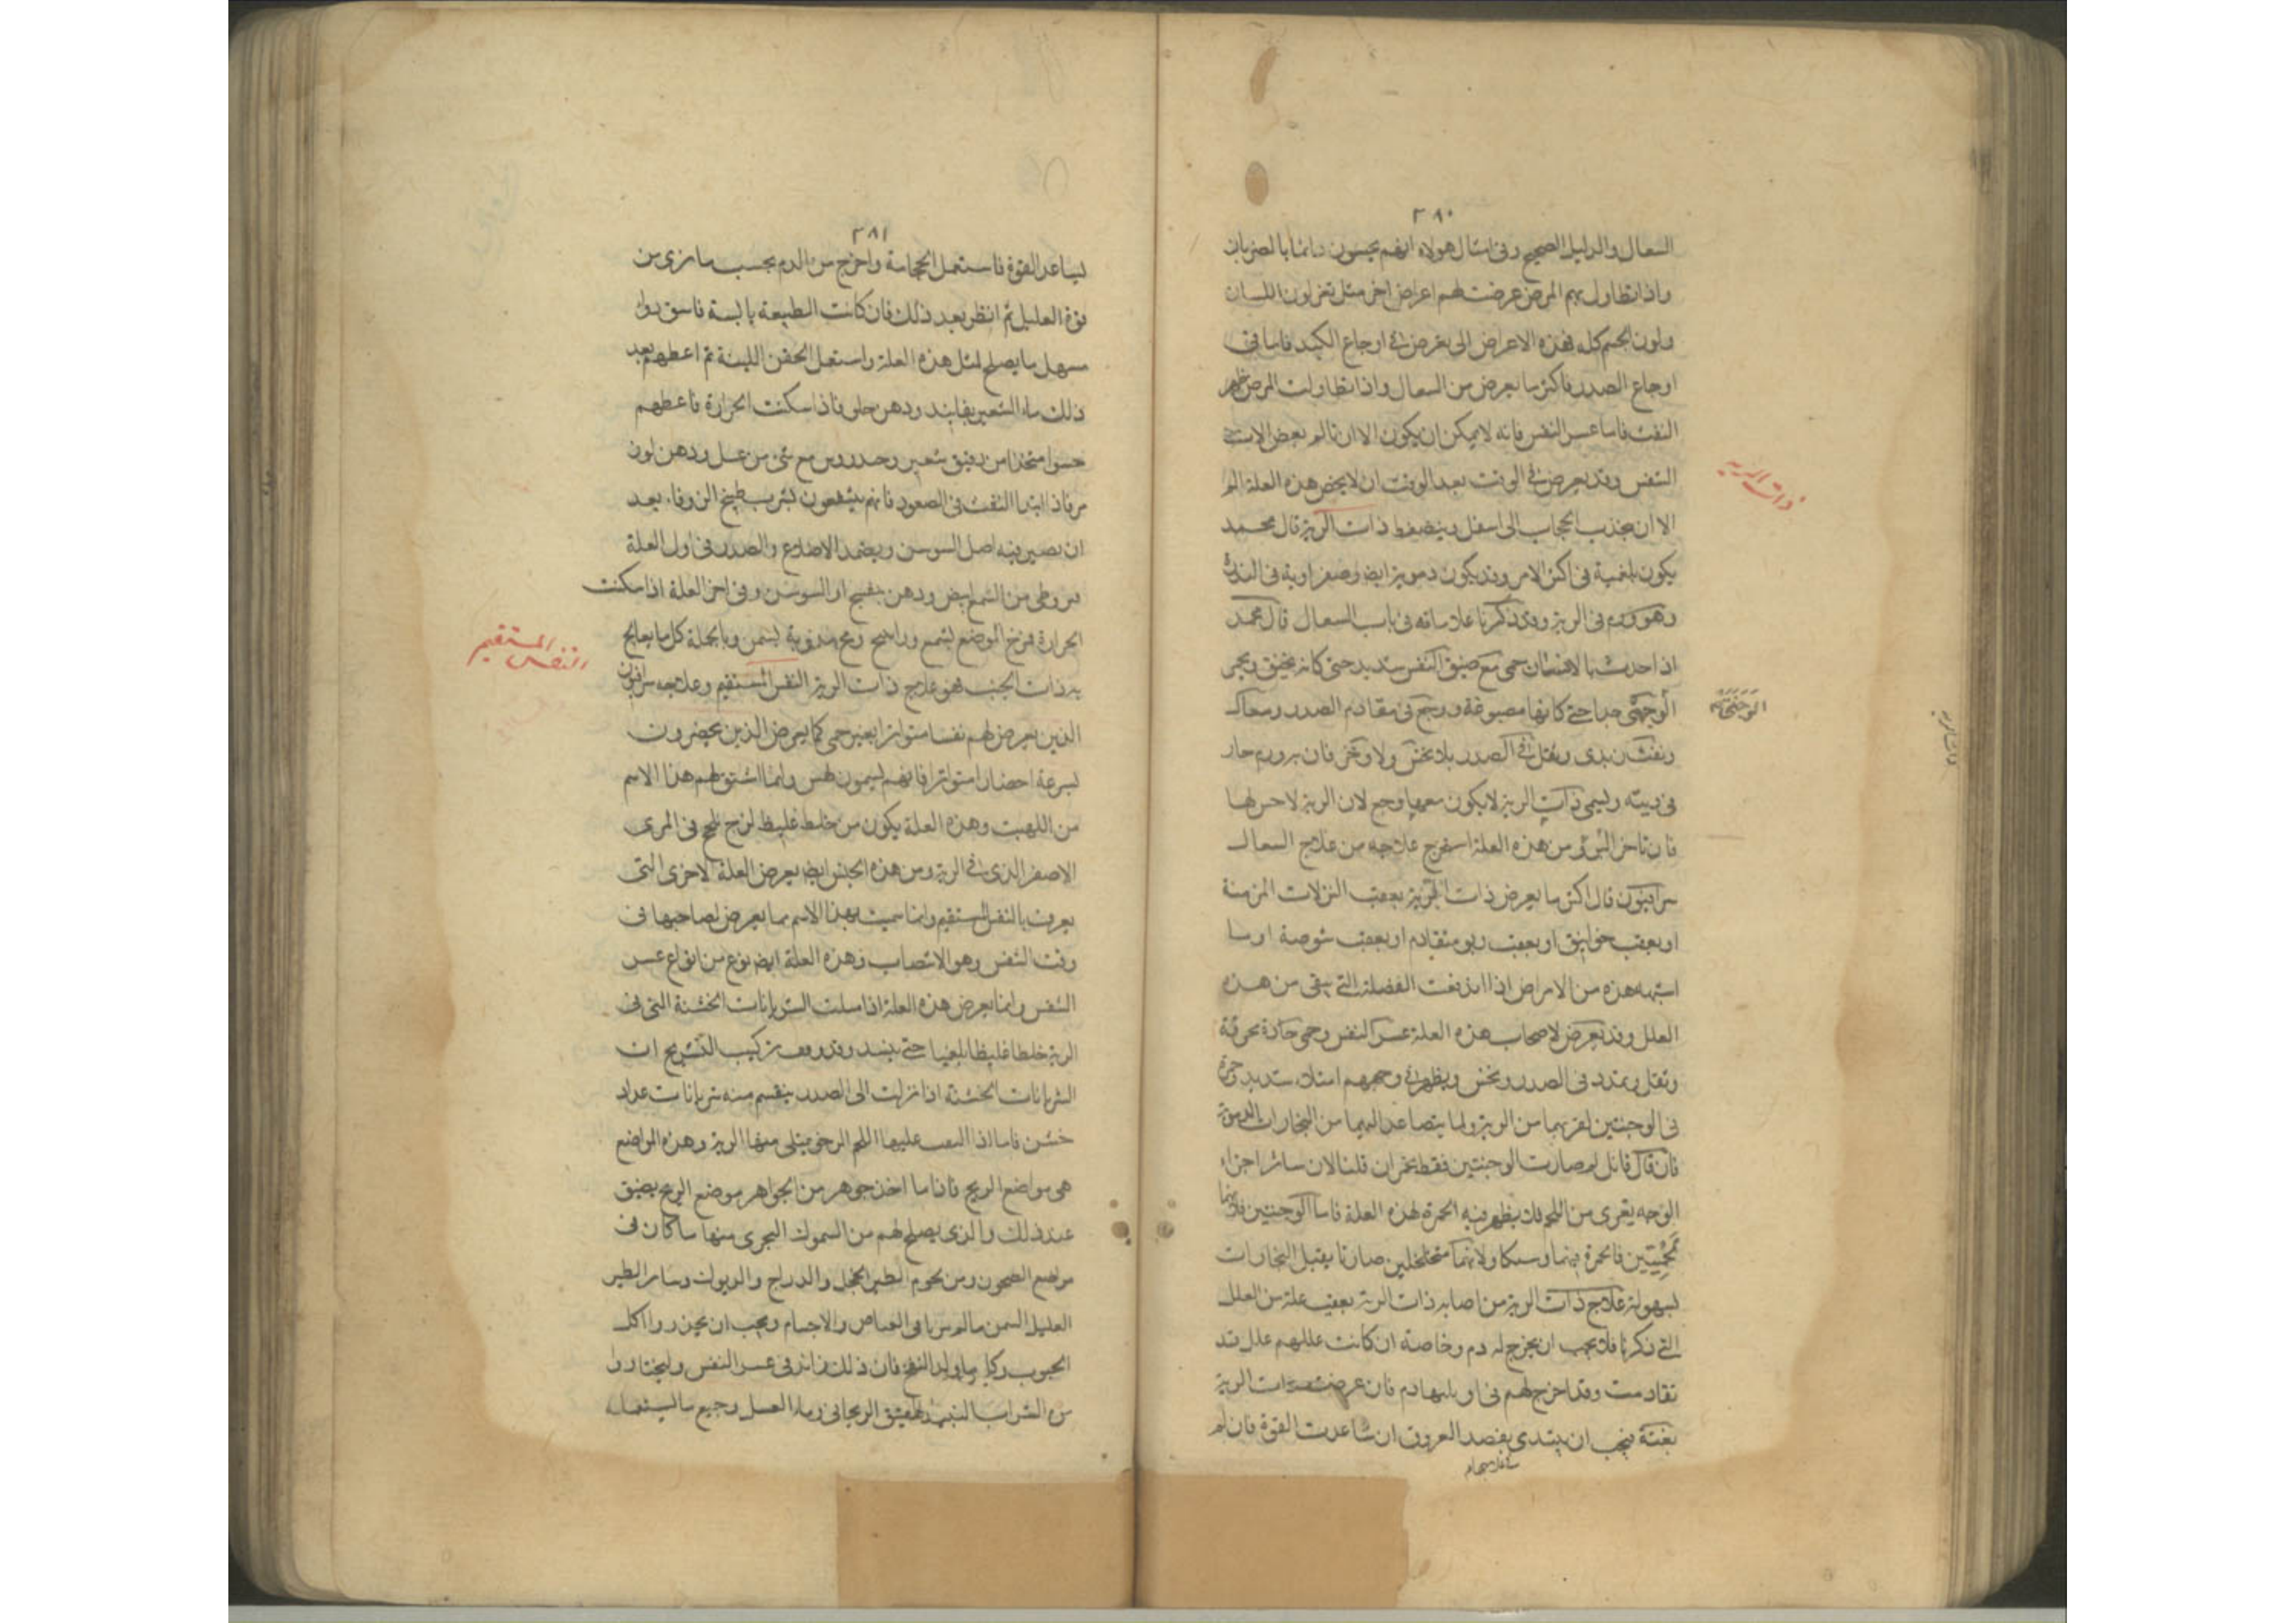 ٣٨٠
السعال والدليل الصحيح وفى امثال هولاء انهم يحسون دائما بالضربان
واذا تطاول بهم المرض عرضت لهم اعراض اخر مثل تغير لون اللسان
ولون الجسم كله فهذه الاعراض التى تعرض فى اوجاع الكبد فاما فى
اوجاع الصدر فاكثر ما يعرض من السعال واذا تطاولت المرض ظهر
النفث فاما عسر النفس فانه لا يمكن ان يكون الا ان تالم بعض الات
التنفس وقد يعرض فى الوقت بعد الوقت ان لا يخص هذه العلة الم
الا ان يجذب الحجاب الى اسفل وينضغط ذات الرية قال محمد
يكون بلغمية فى اكثر الامر وقد يكون دموية ايضا وصفراوية فى الندرة
وهو ورم فى الرية وقد ذكرنا علاماته فى باب السعال قال محمد
اذا حدث بالانسان حمى مع ضيق النفس شديد حتى كانه يختنق ويحمر
الوجه جدا حتى كانها مصبوغة ووجع فى مقادم الصدر وسعال
ونفث زبدى وثقل فى الصدر بلا نخس ولا وخز فان به ورم حار
فى ريته ويسمى ذات الرية لا يكون معها وجع لان الرية لا حس لها
فان تاخر البرؤ من هذه العلة استخرج علاجه من علاج السعال
سرافيون قال اكثر ما يعرض ذات الرية بعقب النزلات المزمنة
او بعقب خوانيق او بعقب ربو متقادم او بعقب شوصة او ما
اشبه هذه من الامراض اذا اندفعت الفضلة التى يبقى من هذه
العلل وقد تعرض لاصحاب هذه العلة عسر النفس وحمى حادة محرقة
وثقل وتمدد فى الصدر ونخس ويظهر فى وجههم امتلاء شديد وحمرة
فى الوجنتين لقربهما من الرية ولما يتصاعد اليهما من البخارات الدموية
فان قال قائل لم صارت الوجنتين فقط يحمران قلنا لان سائر اجزاء
الوجه يعرى من اللحم فلا يظهر فيه الحمرة لهذه العلة فاما الوجنتين فلانهما
لحميتين فالحمرة بينهما وسكا ولانهما متخلخلين صارتا يقبل البخارات
بسهولة علاج ذات الرية من اصابه ذات الرية بعقب علة من العلل
التى ذكرنا فلا يجب ان يخرج له دم وخاصة ان كانت عللهم علل قد
تقادمت وقد اخرج لهم فى اوايلها دم فان عرضت ذات الرية
بغتة فيجب ان يبتدى بفصد العروق ان ساعدت القوة فان لم
ذات الرية
الوجنتين
٣٨١
يساعد القوة فاستعمل الحجامة واخرج من الدم بحسب ما ترى من
قوة العليل ثم انظر بعد ذلك فان كانت الطبيعة يابسة فاسق دواء
مسهل ما يصلح لمثل هذه العلة واستعمل الحقن اللينة ثم اعطهم بعد
ذلك ماء الشعير بفانيد ودهن حلى فاذا سكنت الحرارة فاعطهم
حسوا متخذا من دقيق شعير وخندروس مع شئ من عسل ودهن لوز
مر فاذا ابتدا النفث فى الصعود فانهم ينتفعون بشرب طبيخ الزوفاء بعد
ان يصير فيه اصل السوسن ويضمد الاضلاع والصدر فى اول العلة
قيروطى من الشمع ابيض ودهن بنفسج او السوسن وفى اخر العلة اذا سكنت
الحرارة فمرخ الموضع بشمع وراتنج ومخ مذوبة بسمن وبالجملة كل ما يعالج
به ذات الجنب فهو علاج ذات الرية النفس المستقيم وعلاجه سرافيون
الذين يعرض لهم نفسا متواترا بغير حمى كما يعرض الذين يحضرون
بسرعة احضارا متواترا فانهم يسمون لهس وانما اشتق لهم هذا الاسم
من اللهيت وهذه العلة يكون من خلط غليظ لزج يلحج فى المرى
الاصغر الذى فى الرية ومن هذه الجنس ايضا يعرض العلة الاخرى التى
يعرف بالنفس المستقيم وانما سميت بهذا الاسم مما يعرض لصاحبها فى
وقت التنفس وهو الانتصاب وهذه العلة ايضا نوع من انواع عسر
التنفس وانما يعرض هذه العلة اذا سلت الشريانات الخشنة التى فى
الرية خلطا غليظا بلغميا حتى ينسد وقد وقف تركيب التشريح ان
الشريانات الخشنة اذا نزلت الى الصدر ينقسم منه شريانات عداد
خشن فاما اذا التف عليها اللحم الرخو يمتلى منها الرية وهذه المواضع
هى مواضع الريح فاذا ما اخذ جوهر من الجواهر موضع الريح يضيق
عند ذلك والذى يصلح لهم من السموك البحرى منها ما كان فى
مواضع الصخور ومن لحوم الطير الحجل والدراج والديوك وسائر الطير
العليل السمن ما لم يربا فى الغياض والاجام ويجب ان يحذروا اكل
الحبوب وكل ما ولد النفخ فان ذلك زائد فى عسر النفس وليختاروا
من الشراب النبيذ العتيق الريحانى وماء العسل وجميع ما يستعمله
النفس المستقيم